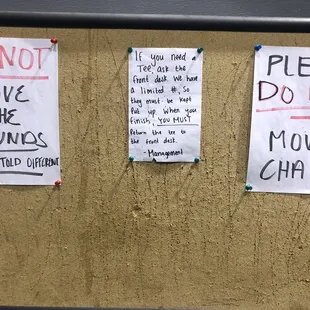 NOT
VE
HE
UNDS
TOLD DIFFERENT
If you need a
Tee ask the
front desk. We have
a limited #, so
they must be kept
put up. When you
finish, YOU MUST
Return the tee to
the front desk.
- Management
PLE
DO
MOV
CHA